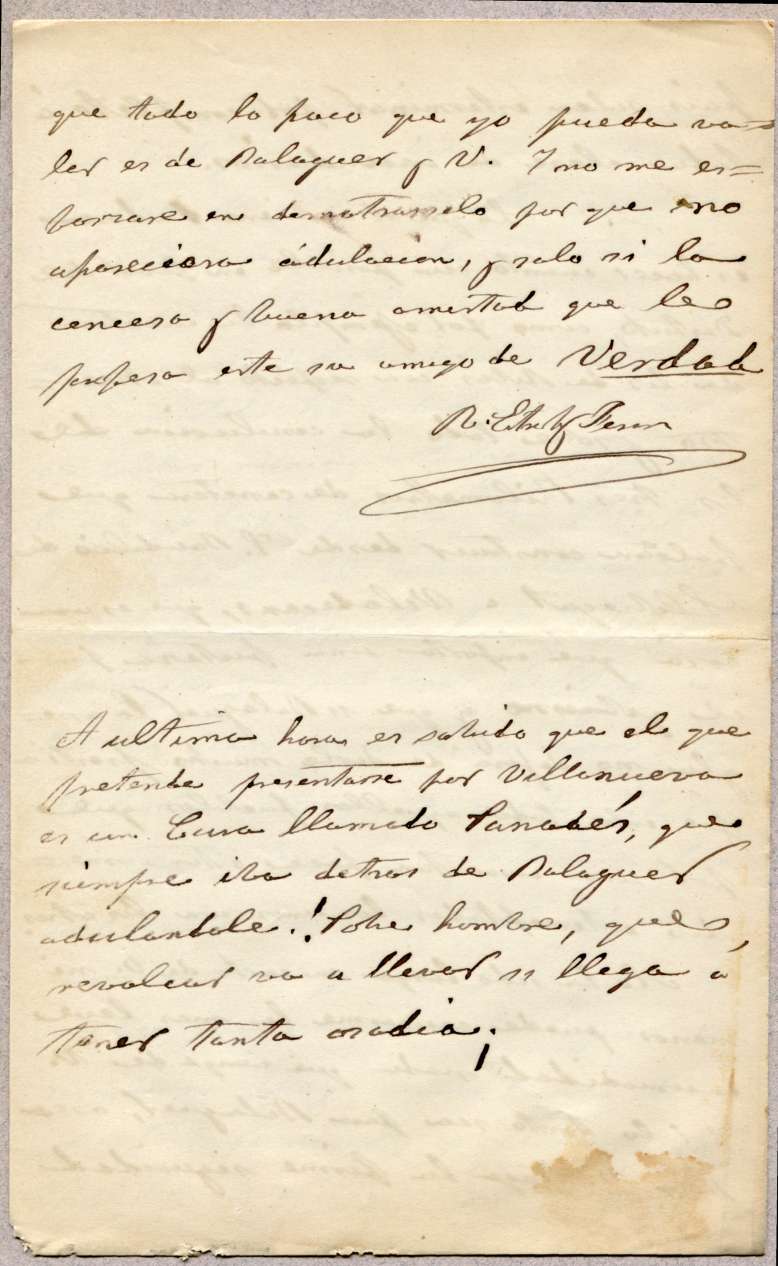 que todo lo poco que yo pueda va=
ler es de Balaguer y V. Y no me es=
forzare en demotrarselo por que no
apareciera ádulacion, y solo si la
cencera y buena amistad que le
profesa este su amigo de Verdad
A ultima hora es sabido que el que
pretende presentarse por Villanueva
es un Cura llamado Panadés, que
siempre iva detras de Balaguer
adulandole.! Pobre hombre, que
revolcar va a llevar si llega á
tener tanta osadia¡